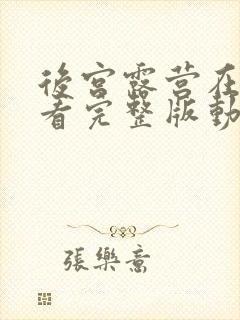 後宮露营在
看完整版動
張樂意